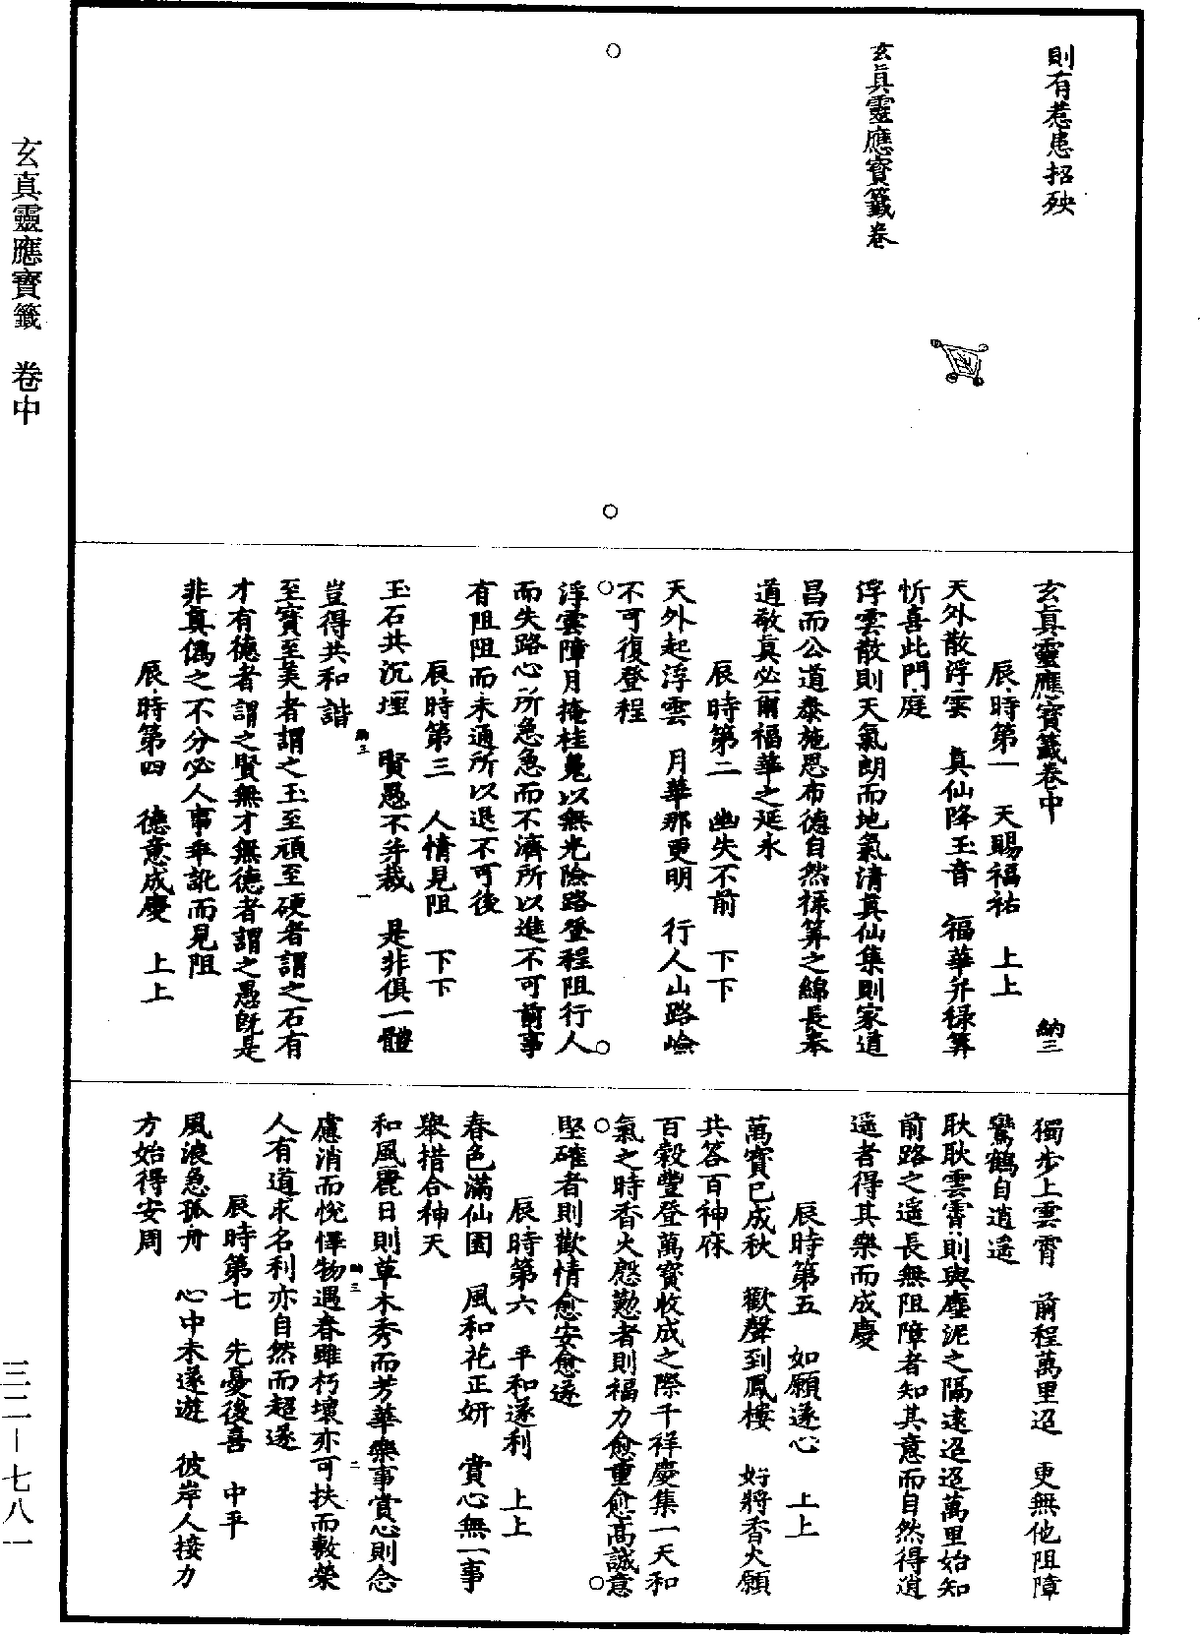 玄真靈應寶籤　卷中
三二—七八一
則有惹患招殃
玄真靈應寶籤卷
玄真靈應寶籤卷中　納三
辰時第一　天賜福祐　上上
天外散浮雲　真仙降玉音　福華并祿筭
忻喜此門庭
浮雲散則天氣朗而地氣清真仙集則家道
昌而公道泰施恩布德自然祿筭之綿長奉
道敬真必爾福華之延永
辰時第二　幽失不前　下下
天外起浮雲　月華那更明　行人山路嶮
不可復登程
浮雲障月掩桂魄以無光險路登程阻行人
而失路心所急急而不濟所以進不可前事
有阻阻而未通所以退不可後
辰時第三　人情見阻　下下
玉石共沉埋　賢愚不并裁　是非俱一體
豈得共和諧
至寶至美者謂之玉至頑至硬者謂之石有
才有德者謂之賢無才無德者謂之愚既是
非真偽之不分必人事乖訛而見阻
辰時第四　德意成慶　上上
獨步上雲霄　前程萬里迢　更無他阻障
鸞鶴自逍遥
耿耿雲霄則與塵泥之隔逺迢迢萬里始知
前路之遥長無阻障者知其意而自然得逍
遥者得其樂而成慶
辰時第五　如願遂心　上上
萬寶已成秋　歡聲到鳳樓　好將香火願
共答百神庥
百榖豐登萬寶收成之際千祥慶集一天和
氣之時香火慇懃者則福力愈重愈高誠意
堅確者則歡情愈安愈遂
辰時第六　平和遂利　上上
春色滿仙園　風和花正妍　賞心無一事
舉措合神天
和風麗日則草木秀而芳華樂事賞心則念
慮消而悅懌物遇春雖朽壞亦可扶而敷榮
人有道求名利亦自然而超遂
辰時第七　先憂後喜　中平
風浪急孤舟　心中未遂遊　彼岸人接力
方始得安周